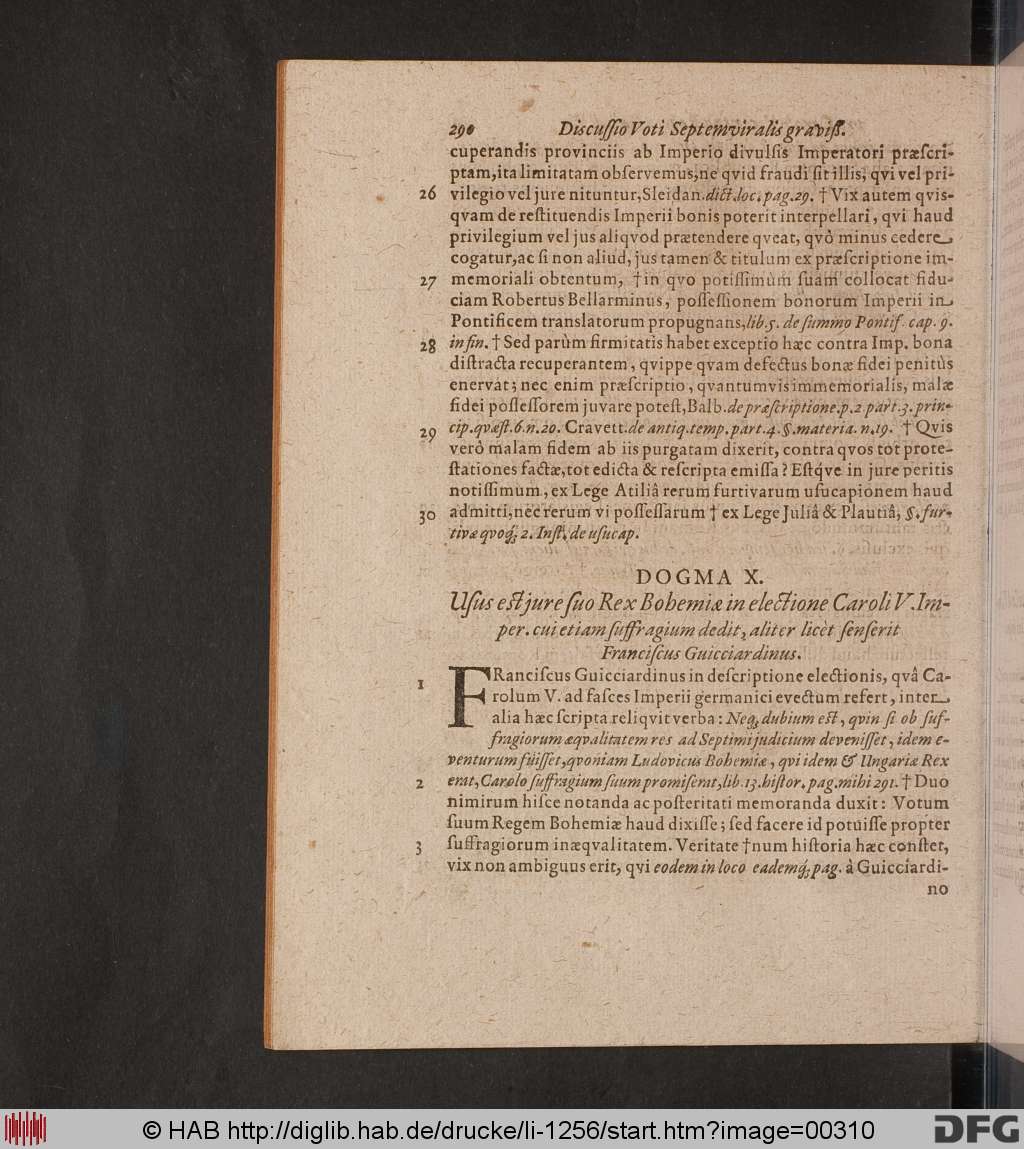 290 Discuſſio Voti Septemviralis graviſſ.
cuperandis provinciis ab Imperio divulſis Imperatori præſcri-
ptam, ita limitatam obſervemus, ne qvid fraudi ſit illis, qvi vel pri-
26 vilegio vel jure nituntur, Sleidan. dict. loc. pag. 29. † Vix autem qvis-
qvam de reſtituendis Imperii bonis poterit interpellari, qvi haud
privilegium vel jus aliqvod prætendere qveat, qvô minus cedere
cogatur, ac ſi non aliud, jus tamen & titulum ex præſcriptione im-
27 memoriali obtentum, † in qvo potiſſimùm ſuam collocat fidu-
ciam Robertus Bellarminus, poſſeſſionem bonorum Imperii in
Pontificem translatorum propugnans, lib. 5. de ſummo Pontif. cap. 9.
28 in fin. † Sed parùm firmitatis habet exceptio hæc contra Imp. bona
diſtracta recuperantem, qvippe qvam defectus bonæ fidei penitùs
enervat; nec enim præſcriptio, qvantumvis immemorialis, malæ
fidei poſſeſſorem juvare poteſt, Balb. de præſcriptione. p. 2 part. 3. prin-
29 cip. qvæſt. 6. n. 20. Cravett. de antiq. temp. part. 4. §. materia. n. 19. † Qvis
verò malam fidem ab iis purgatam dixerit, contra qvos tot prote-
ſtationes factæ, tot edicta & reſcripta emiſſa? Eſtq́ve in jure peritis
notiſſimum, ex Lege Atiliâ rerum furtivarum uſucapionem haud
30 admitti, nec rerum vi poſſeſſarum † ex Lege Juliâ & Plautiâ, §. fur-
tivæ qvoq; 2. Inſt. de uſucap.
DOGMA X.
Uſus eſt jure ſuo Rex Bohemiæ in electione Caroli V. Im-
per. cui etiam ſuffragium dedit, aliter licèt ſenſerit
Franciſcus Guicciardinus.
1 FRanciſcus Guicciardinus in deſcriptione electionis, qvâ Ca-
rolum V. ad faſces Imperii germanici evectum refert, inter
alia hæc ſcripta reliqvit verba: Neq; dubium eſt, qvin ſi ob ſuf-
fragiorum æqvalitatem res ad Septimi judicium deveniſſet, idem e-
venturum fuiſſet, qvoniam Ludovicus Bohemiæ, qvi idem & Ungariæ Rex
2 erat, Carolo ſuffragium ſuum promiſerat, lib. 13. hiſtor. pag. mihi 291. † Duo
nimirum hiſce notanda ac poſteritati memoranda duxit: Votum
ſuum Regem Bohemiæ haud dixiſſe; ſed facere id potuiſſe propter
3 ſuffragiorum inæqvalitatem. Veritate † num hiſtoria hæc conſtet,
vix non ambiguus erit, qvi eodem in loco eademq́; pag. à Guicciardi-
no
© HAB http://diglib.hab.de/drucke/li-1256/start.htm?image=00310
DFG